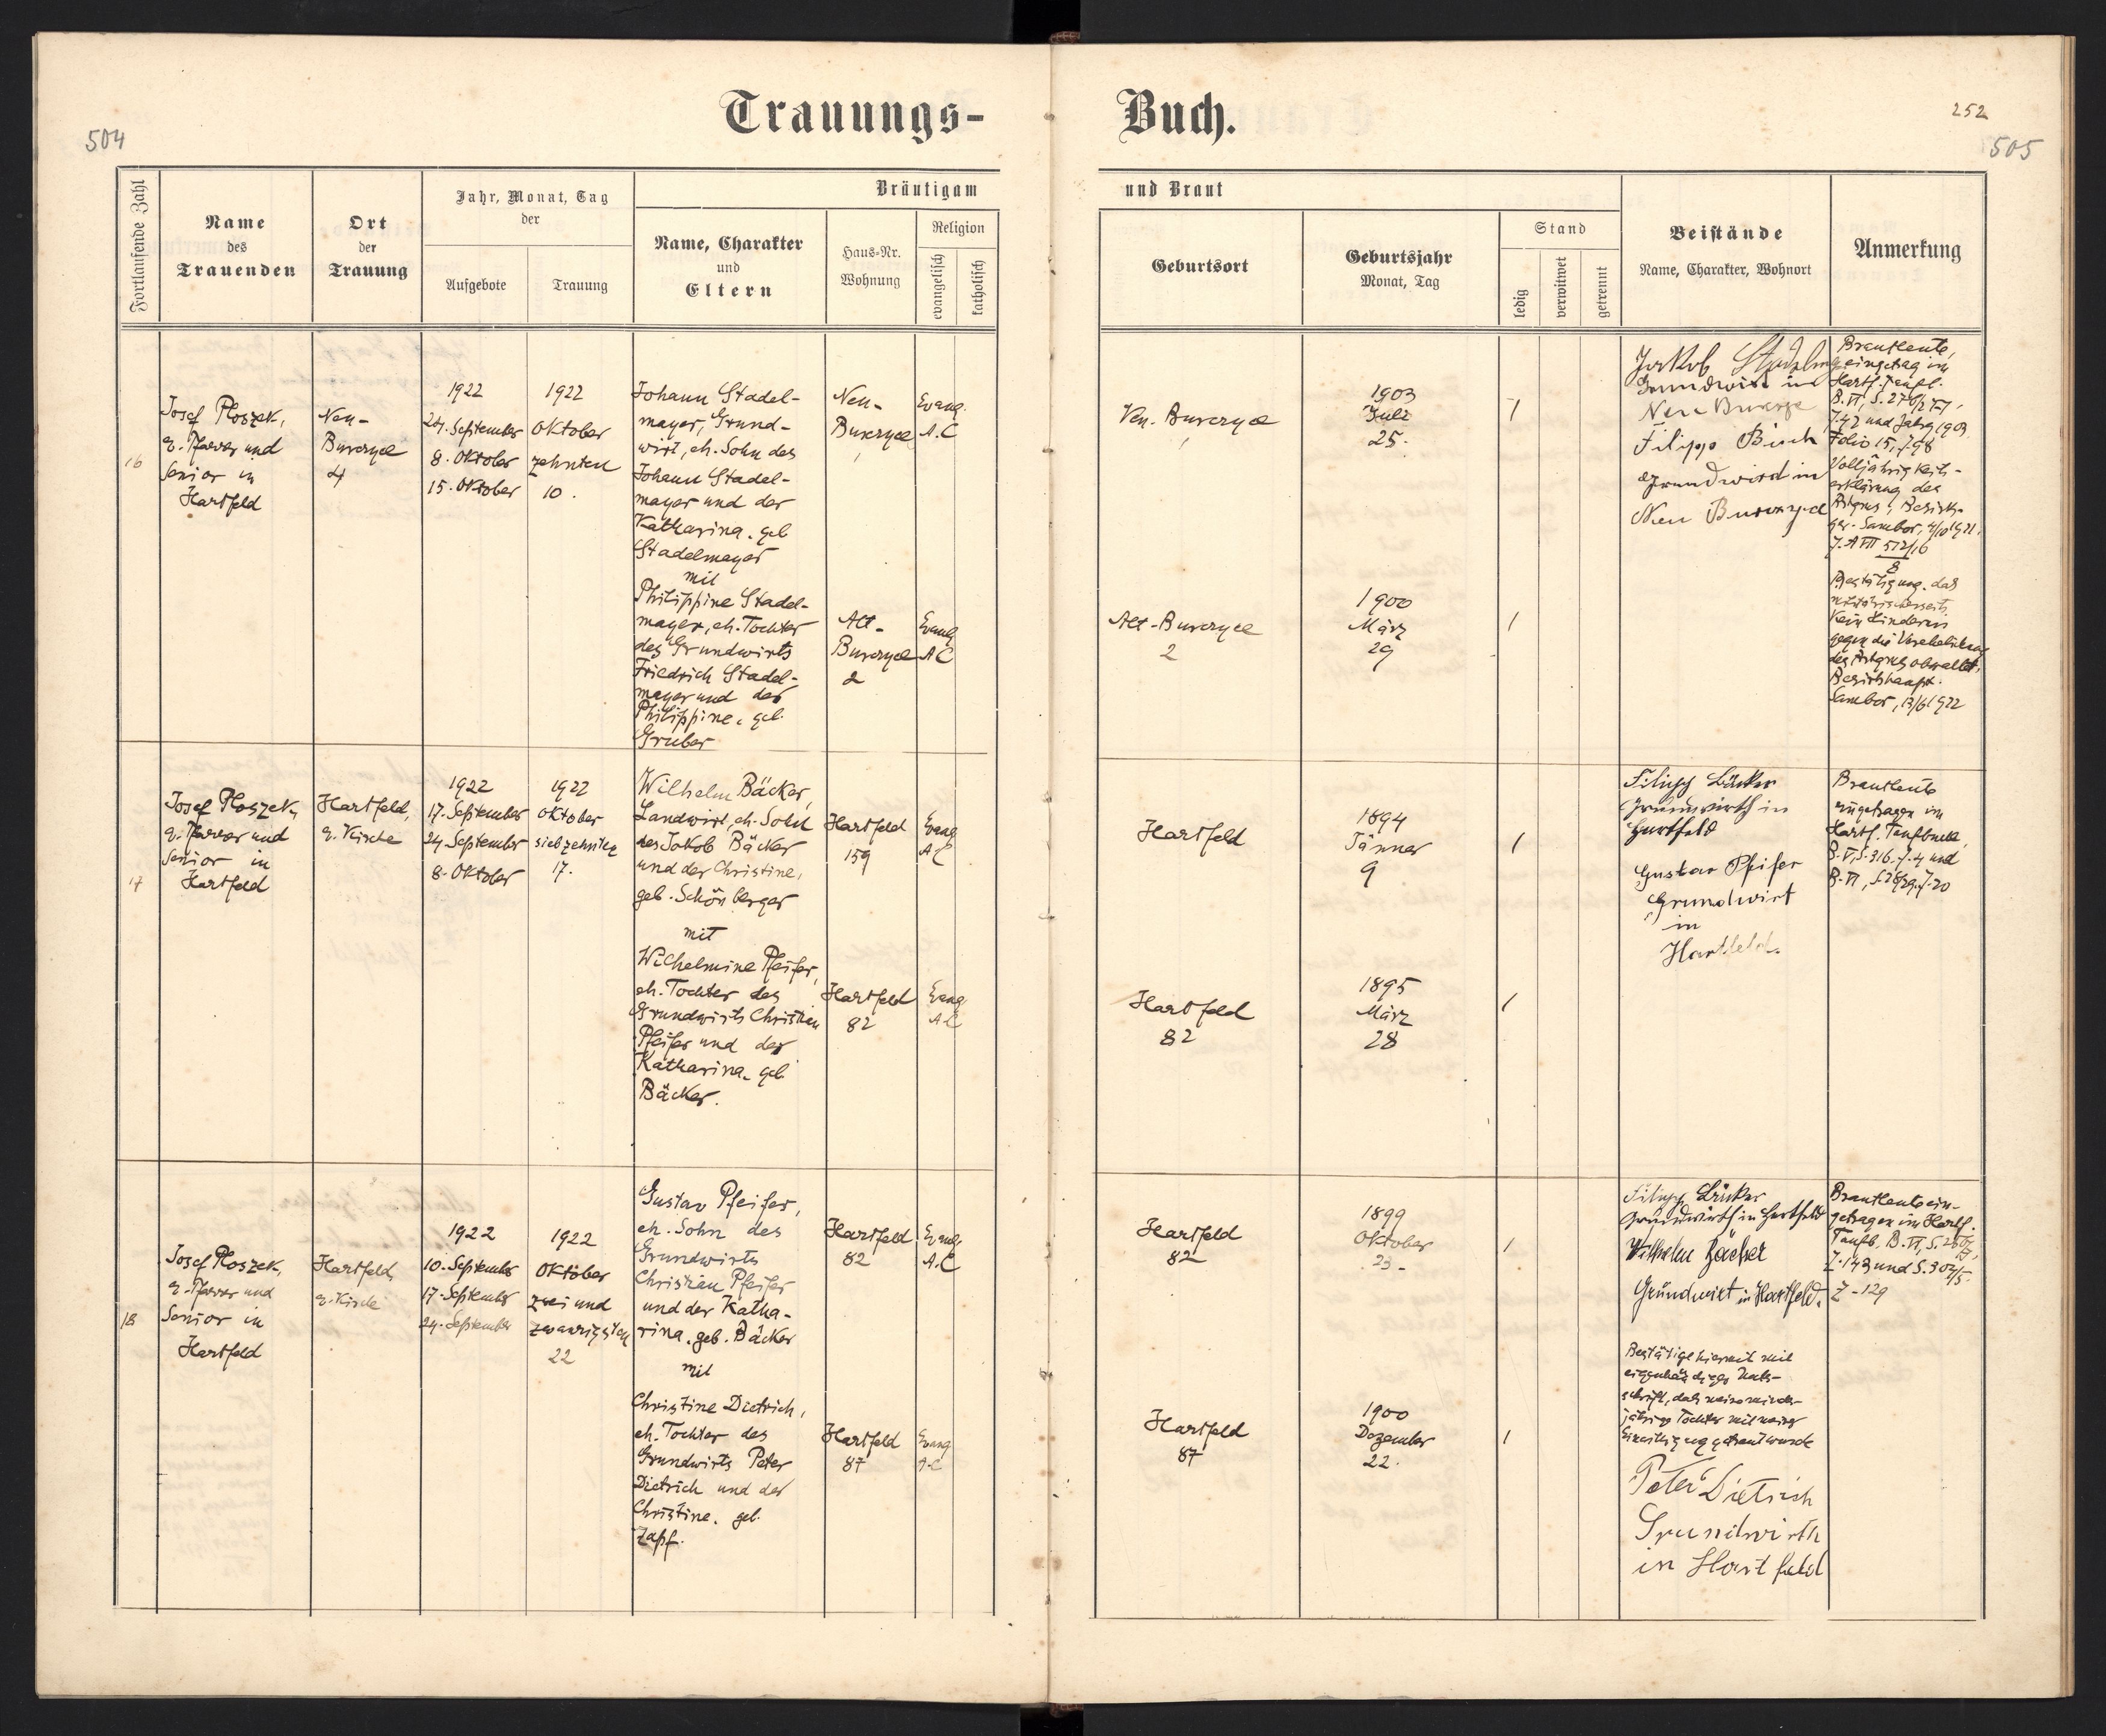 504
Trauungs-
Buch.
252
505
Fortlaufende Zahl
Name
des
Trauenden
Ort
der
Trauung
Jahr, Monat, Tag
der
Aufgebote
Trauung
Bräutigam
Name, Charakter
und
Eltern
Haus-Nr.
Wohnung
Religion
evangelisch
katholisch
und Braut
Geburtsort
Geburtsjahr
Monat, Tag
Stand
ledig
verwitwet
getrennt
Beistände
Name, Charakter, Wohnort
Anmerkung
16
Josef Ploszek,
e. Pfarrer und
Senior in
Hartfeld
Neu-
Burczyce
4
1922
24. September
8. Oktober
15. Oktober
1922
Oktober
zehnten
10.
Johann Stadel-
mayer, Grund-
wirt, eh. Sohn des
Johann Stadel-
mayer und der
Katharina, geb
Stadelmayer
mit
Philippine Stadel-
mayer, eh. Tochter
des Grundwirts
Friedrich Stadel-
mayer und der
Philippine, geb.
Gruber
Neu-
Burczyce
Evang.
A.C
Alt-
Burczyce
2
Evang
A C
Neu. Burczyce
1903
Juli
25.
1
Alt-Burczyce
2
1900
März
29
1
Jakob
Grundwirt in
Neu Burczyce
Filipp Bisch
Grundwird in
Neu Burczyce
Brautleute,
eingetrag im
Hartf. Taufb.
B. VI, S. 276/277,
Z. 47 und Jahrg 1903
Folio 15, Z. 98
Volljährigkeits-
erklärung des
Bezirks-
ger. Sambor, 4/10 1921,
Z. A VII 512/16
8
Bestätigung. das
militärischerseits
kein Hindernis
gegen die Verehelichung
des obwaltet,
Bezirkhaupt.
Sambor, 13/6 1922
17
Josef Ploszek,
e. Pfarrer und
Senior in
Hartfeld
Hartfeld,
e. Kirche
1922
17. September
24. September
8. Oktober
1922
Oktober
siebzehnten
17.
Wilhelm Bäcker,
Landwirt, eh. Sohn
des Jakob Bäcker
und der Christine,
geb. Schönberger
mit
Wilhelmine Pfeifer,
eh. Tochter des
Grundwirts Christian
Pfeifer und der
Katharina, geb
Bäcker.
Hartfeld
159
Evang
A C
Hartfeld
82
Evang
A C
Hartfeld
1894
Jänner
9
1
Hartfeld
82
1895
März
28
1
Filipp Bäcker
Grundwirth in
Hartfeld
Gustav Pfeifer
Grundwirt
in
Hartfeld.
Brautleute
eingetragen im
Hartf. Taufbuch,
B. V, S. 316, Z. 4 und
B. VI, S. 28/29, Z. 20
18
Josef Ploszek,
e. Pfarrer und
Senior in
Hartfeld
Hartfeld,
e. Kirche
1922
10. September
17. September
24. September
1922
Oktober
zwei und
zwanzigsten
22
Gustav Pfeifer,
eh. Sohn des
Grundwirts
Christian Pfeifer
und der Katha-
rina, geb. Bäcker
mit
Christine Dietrich,
eh. Tochter des
Grundwirts Peter
Dietrich und der
Christine, geb.
Zapf.
Hartfeld
82
Evang
A.C
Hartfeld
87
Evang
A.C
Hartfeld
82
1899
Oktober
23.
1
Hartfeld
87
1900
Dezember
22.
1
Filipp Bäcker
Grundwirth in Hartfeld
Wilhelm Bäcker
Gründwirt in Hartfeld.
Bestätige hiermit mit
eigenhändiger Unter-
schrift, daß meine minder-
jährige Tochter mit meiner
Einwilligung getraut wurde
Peter Dietrich
Grundwirth
in Hartfeld
Brautleute ein-
getragen im Hartf.
Taufb, B. VI, S.
Z. 143 und S. 304/5.
Z - 129